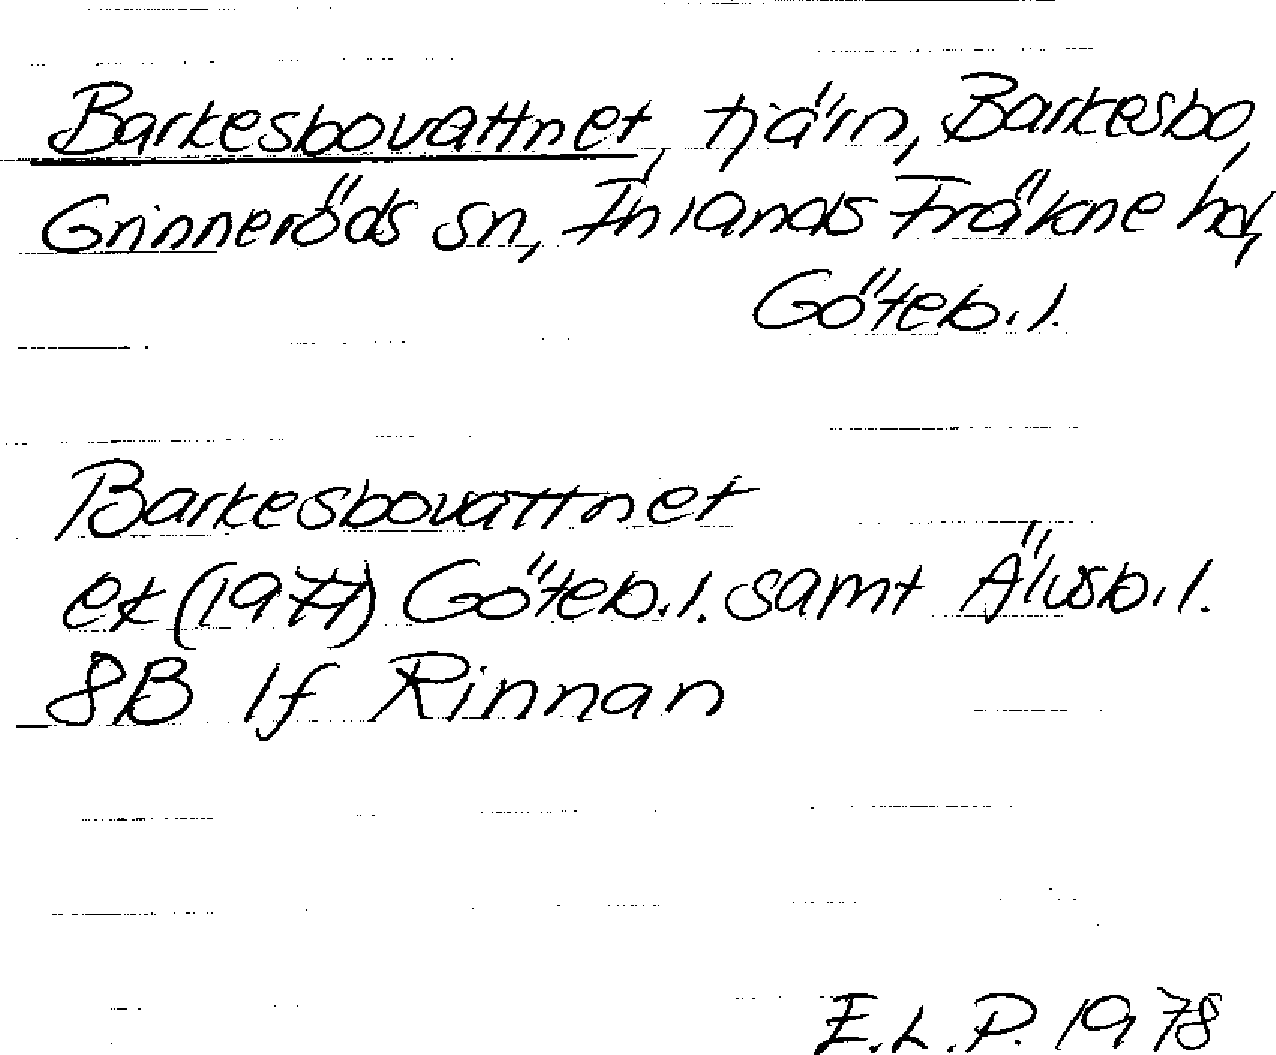 Barkesbovattnet, tjärn, Barkesbo,
Grinneröds sn, Inlands Fräkne hd,
Göteb.l.
Barkesbovattnet
ek (1977) Göteb.l. samt Älvsb.l.
8B 1f Rinnan
E.L.P. 1978